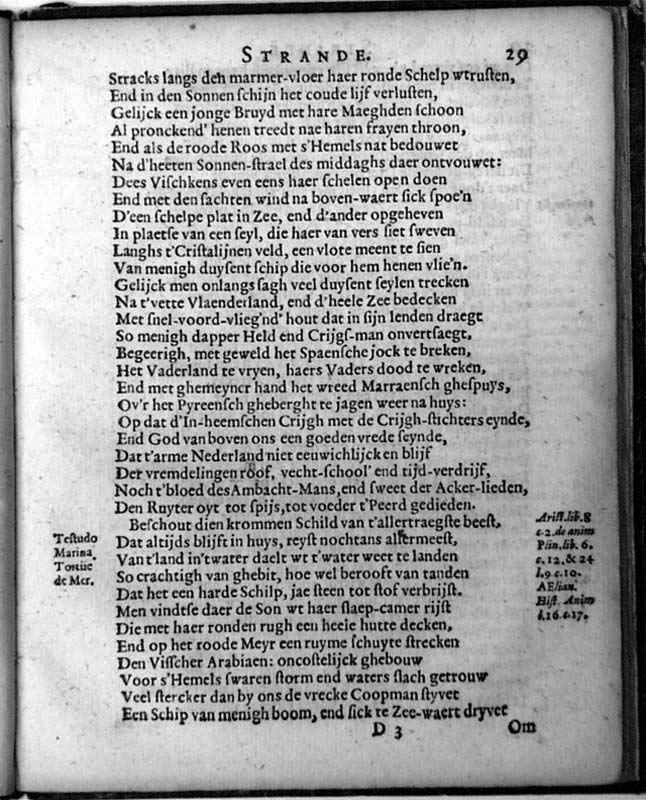 STRANDE. 29
Stracks langs den marmer-vloer haer ronde Schelp wtrusten,
End in den Sonnen schijn het coude lijf verlusten,
Gelijck een jonge Bruyd met hare Maeghden schoon
Al pronckend' henen treedt nae haren frayen throon,
End als de roode Roos met s'Hemels nat bedouwet
Na d'heeten Sonnen-strael des middaghs daer ontvouwet:
Dees Vischkens even eens haer schelen open doen
End met den sachten wind na boven-waert sick spoe'n
D'een schelpe plat in Zee, end d'ander opgeheven
In plaetse van een seyl, die haer van vers siet sweven
Langhs t'Cristalijnen veld, een vlote meent te sien
Van menigh duysent schip die voor hem henen vlie'n.
Gelijck men onlangs sagh veel duysent seylen trecken
Na t'vette Vlaenderland, end d'heele Zee bedecken
Met snel-voord-vlieg'nd' hout dat in sijn lenden draegt
So menigh dapper Held end Crijgs-man onversaegt,
Begeerigh, met geweld het Spaensche jock te breken,
Het Vaderland te vryen, haers Vaders dood te wreken,
End met ghemeyner hand het wreed Marraensch ghespuys,
Ov'r het Pyreensch gheberght te jagen weer na huys:
Op dat d'In-heemschen Crijgh met de Crijgh-stichters eynde,
End God van boven ons een goeden vrede seynde,
Dat t'arme Nederland niet eeuwichlijcken blijf
Der vremdelingen roof, vecht-school' end tijd-verdrijf,
Noch t'bloed des Ambacht-Mans, end sweet der Acker-lieden,
Den Ruyter oyt tot spijs, tot voeder t'Peerd gedieden.
Beschout dien krommen Schild van t'allertraegste beest,
Dat altijds blijft in huys, reyst nochtans aldermeest,
Van t'land in't water daelt wt t'water weer te landen
So crachtigh van ghebit, hoe wel berooft van tanden
Dat het een harde Schilp, jae steen tot stof verbrijst.
Men vindtse daer de Son wt haer slaep-camer rijst
Die met haer ronden rugh een heele hutte decken,
End op het roode Meyr een ruyme schuyte strecken
Den Visscher Arabiaen: oncostelijck ghebouw
Voor s'Hemels swaren storm end waters slach getrouw
Veel stercker dan by ons de vrecke Coopman styvet
Een Schip van menigh boom, end sick te Zee-waert dryvet
D 3 Om
Testudo
Marina,
Tortuë
de Mer.
Arist. lib. 8
c. 2. de anim
Plin. lib. 6.
c. 12. & 24
l. 9 c. 10.
AElian.
Hist. Anim
l. 16. c. 17.